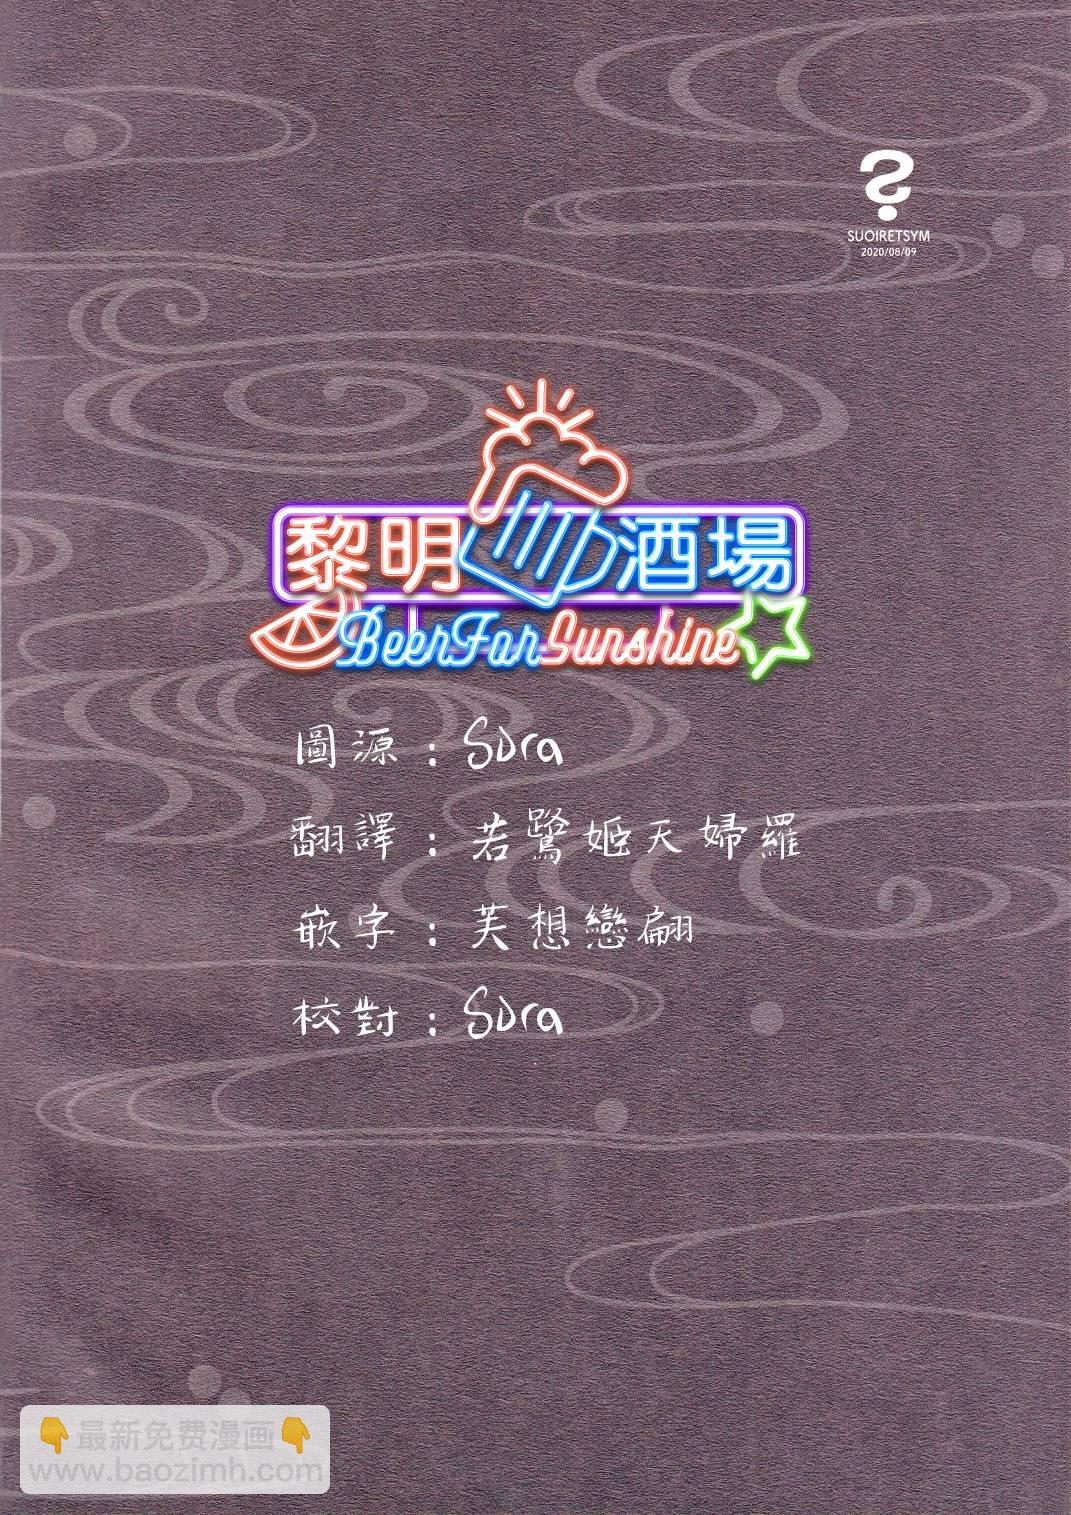 ?
SUOIRETSYM
2020/08/09
黎明酒場
BeerForSunshine
圖源：Sora
翻譯：若鷺姬天婦羅
嵌字：芙想戀翩
校對：Sora
👇最新免费漫画👇
www.baozimh.com